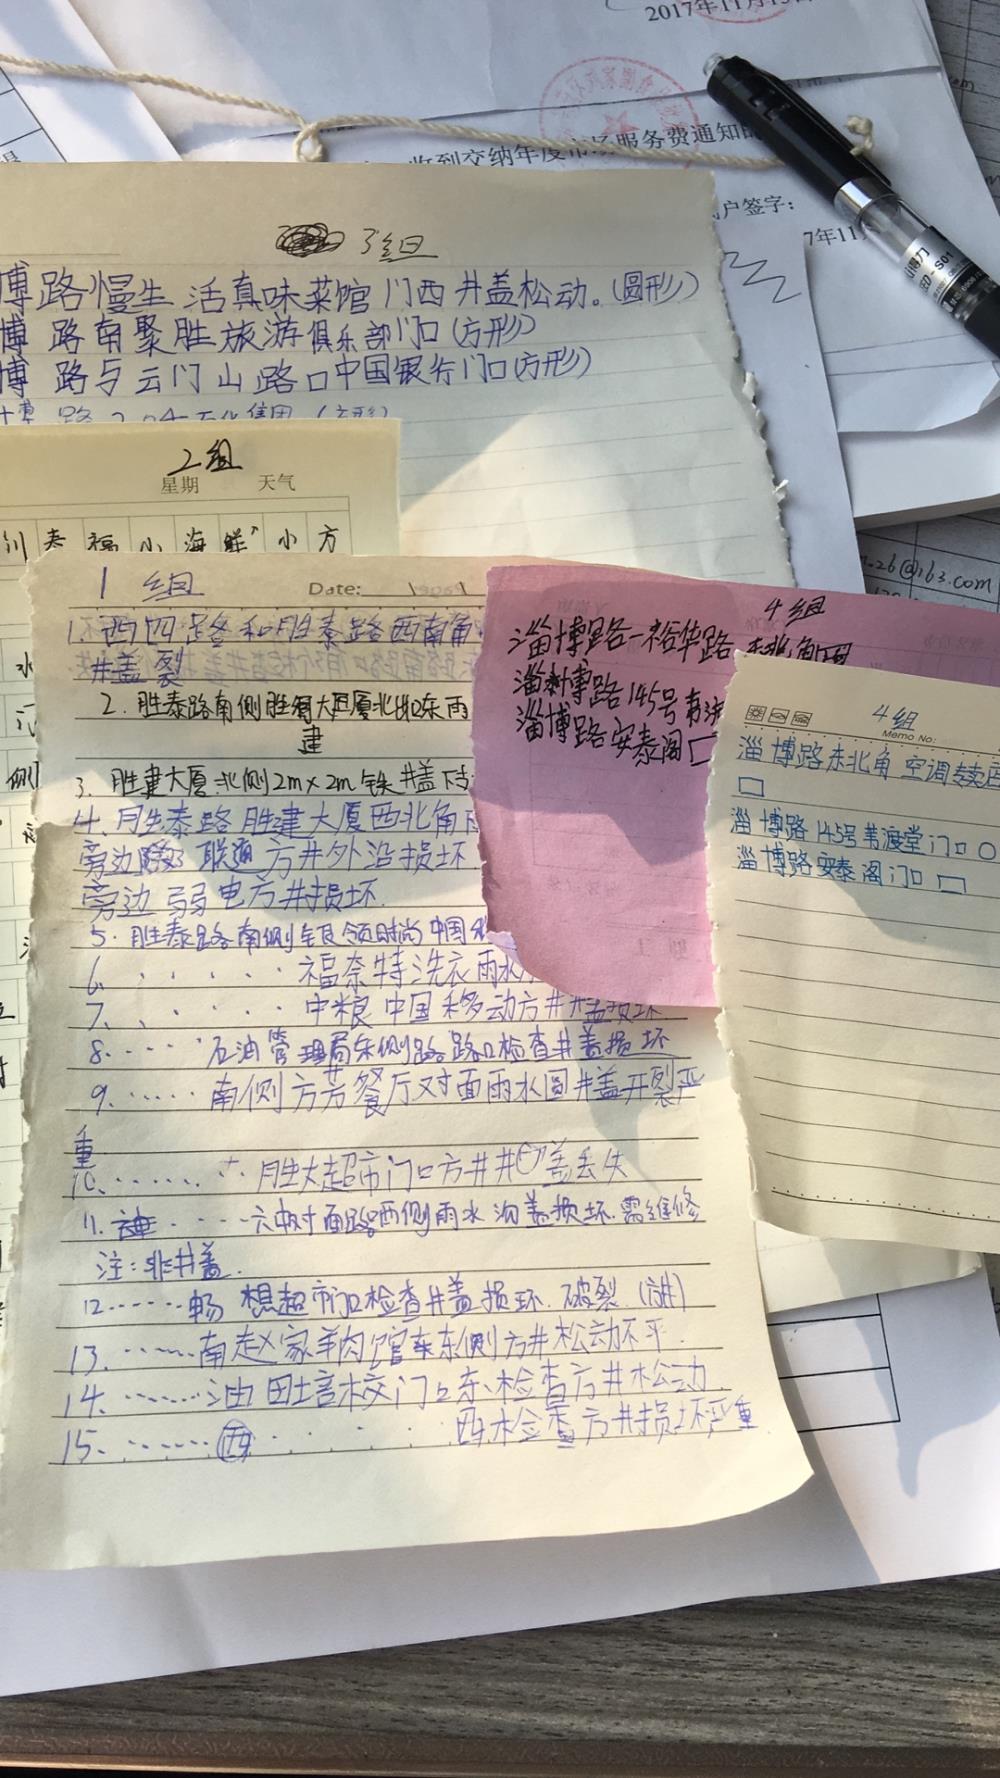 2017年11月15日
收到交纳年度市场服务费通知
户签字：
7年11
3组
博路慢生活真味菜馆门西井盖松动。(圆形)
博路南聚胜旅游俱乐部门口(方形)
博路与云门山路口中国银行门口(方形)
2组
星期 天气
川春福小海鲜 小方
26@163.com
1组
Date:
1.西四路和胜泰路西南角
井盖裂
2.胜泰路南侧胜大厦北出东雨
建
3.胜建大厦北侧2m×2m铁井盖下
4.胜泰路胜建大厦西北角
旁边联通方井外沿损坏
旁边弱电方井损坏.
5.胜泰路南侧银领时尚中国
6. . . . . 福奈特洗衣雨水
7. . . . . 中粮中国移动方井井盖损坏
8. . . . . 石油管理局东侧路路口检查井盖损坏
9. ...... 南侧方芳餐厅对面雨水圆井盖开裂严
重
10. ....... 胜大超市门口方井井盖丢失
11. .... 六中对面路西侧雨水沟盖损坏.需维修
注:非井盖.
12. ...... 畅想超市门口检查井盖损坏.破裂.(讯)
13. ...... 南赵家羊肉馆东侧方井松动不平.
14. ....... 油田培校门口东检查方井松动
15. ...... 西 . . . . 西检查方井损坏严重
4组
淄博路-裕华路东北角
淄博路145号韦
淄博路安泰阁□
4组
Memo No:
淄博路东北角空调专店
□
淄博路145号苇渡堂门口○
淄博路安泰阁门口□